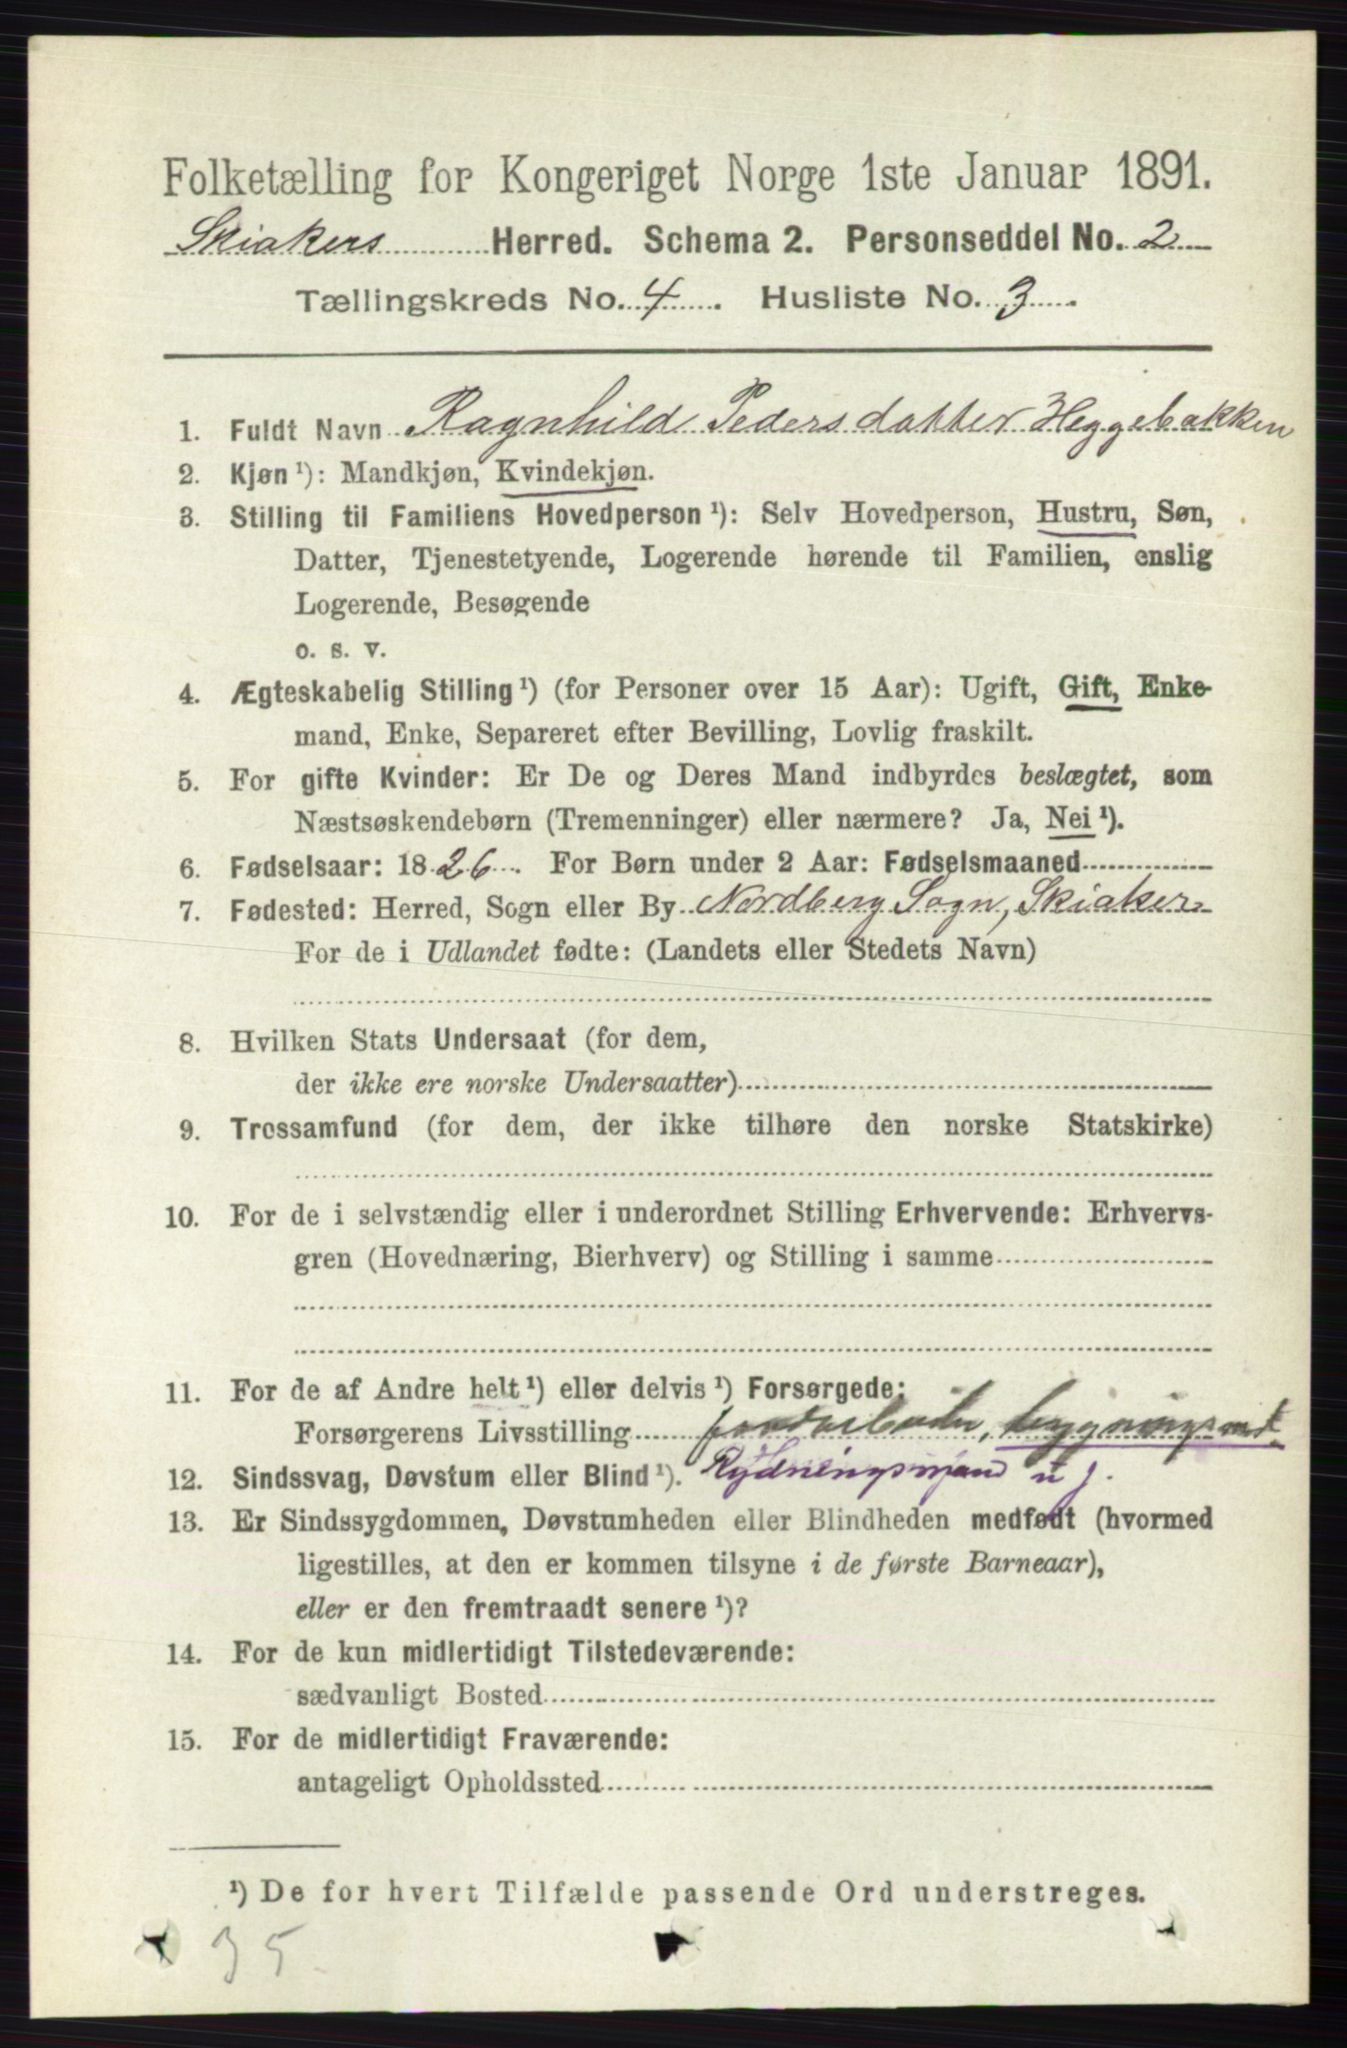 Folketælling for Kongeriget Norge 1ste Januar 1891.
Skiakers Herred. Schema 2. Personseddel No. 2
Tællingskreds No. 4. Husliste No. 3.
1. Fuldt Navn Ragnhild Pedersdatter Heggebakken
2. Kjøn ¹): Mandkjøn, Kvindekjøn.
3. Stilling til Familiens Hovedperson ¹): Selv Hovedperson, Hustru, Søn,
Datter, Tjenestetyende, Logerende hørende til Familien, enslig
Logerende, Besøgende
o. s. v.
4. Ægteskabelig Stilling ¹) (for Personer over 15 Aar): Ugift, Gift, Enke-
mand, Enke, Separeret efter Bevilling, Lovlig fraskilt.
5. For gifte Kvinder: Er De og Deres Mand indbyrdes beslægtet, som
Næstsøskendebørn (Tremenninger) eller nærmere? Ja, Nei ¹).
6. Fødselsaar: 1826. For Børn under 2 Aar: Fødselsmaaned
7. Fødested: Herred, Sogn eller By Nordberg Sogn, Skiaker
For de i Udlandet fødte: (Landets eller Stedets Navn)
8. Hvilken Stats Undersaat (for dem,
der ikke ere norske Undersaatter)
9. Trossamfund (for dem, der ikke tilhøre den norske Statskirke)
10. For de i selvstændig eller i underordnet Stilling Erhvervende: Erhvervs-
gren (Hovednæring, Bierhverv) og Stilling i samme
11. For de af Andre helt ¹) eller delvis ¹) Forsørgede:
Forsørgerens Livsstilling
12. Sindssvag, Døvstum eller Blind ¹). Rydningsmand u j.
13. Er Sindssygdommen, Døvstumheden eller Blindheden medfødt (hvormed
ligestilles, at den er kommen tilsyne i de første Barneaar),
eller er den fremtraadt senere ¹)?
14. For de kun midlertidigt Tilstedeværende:
sædvanligt Bosted
15. For de midlertidigt Fraværende:
antageligt Opholdssted
¹) De for hvert Tilfælde passende Ord understreges.
35